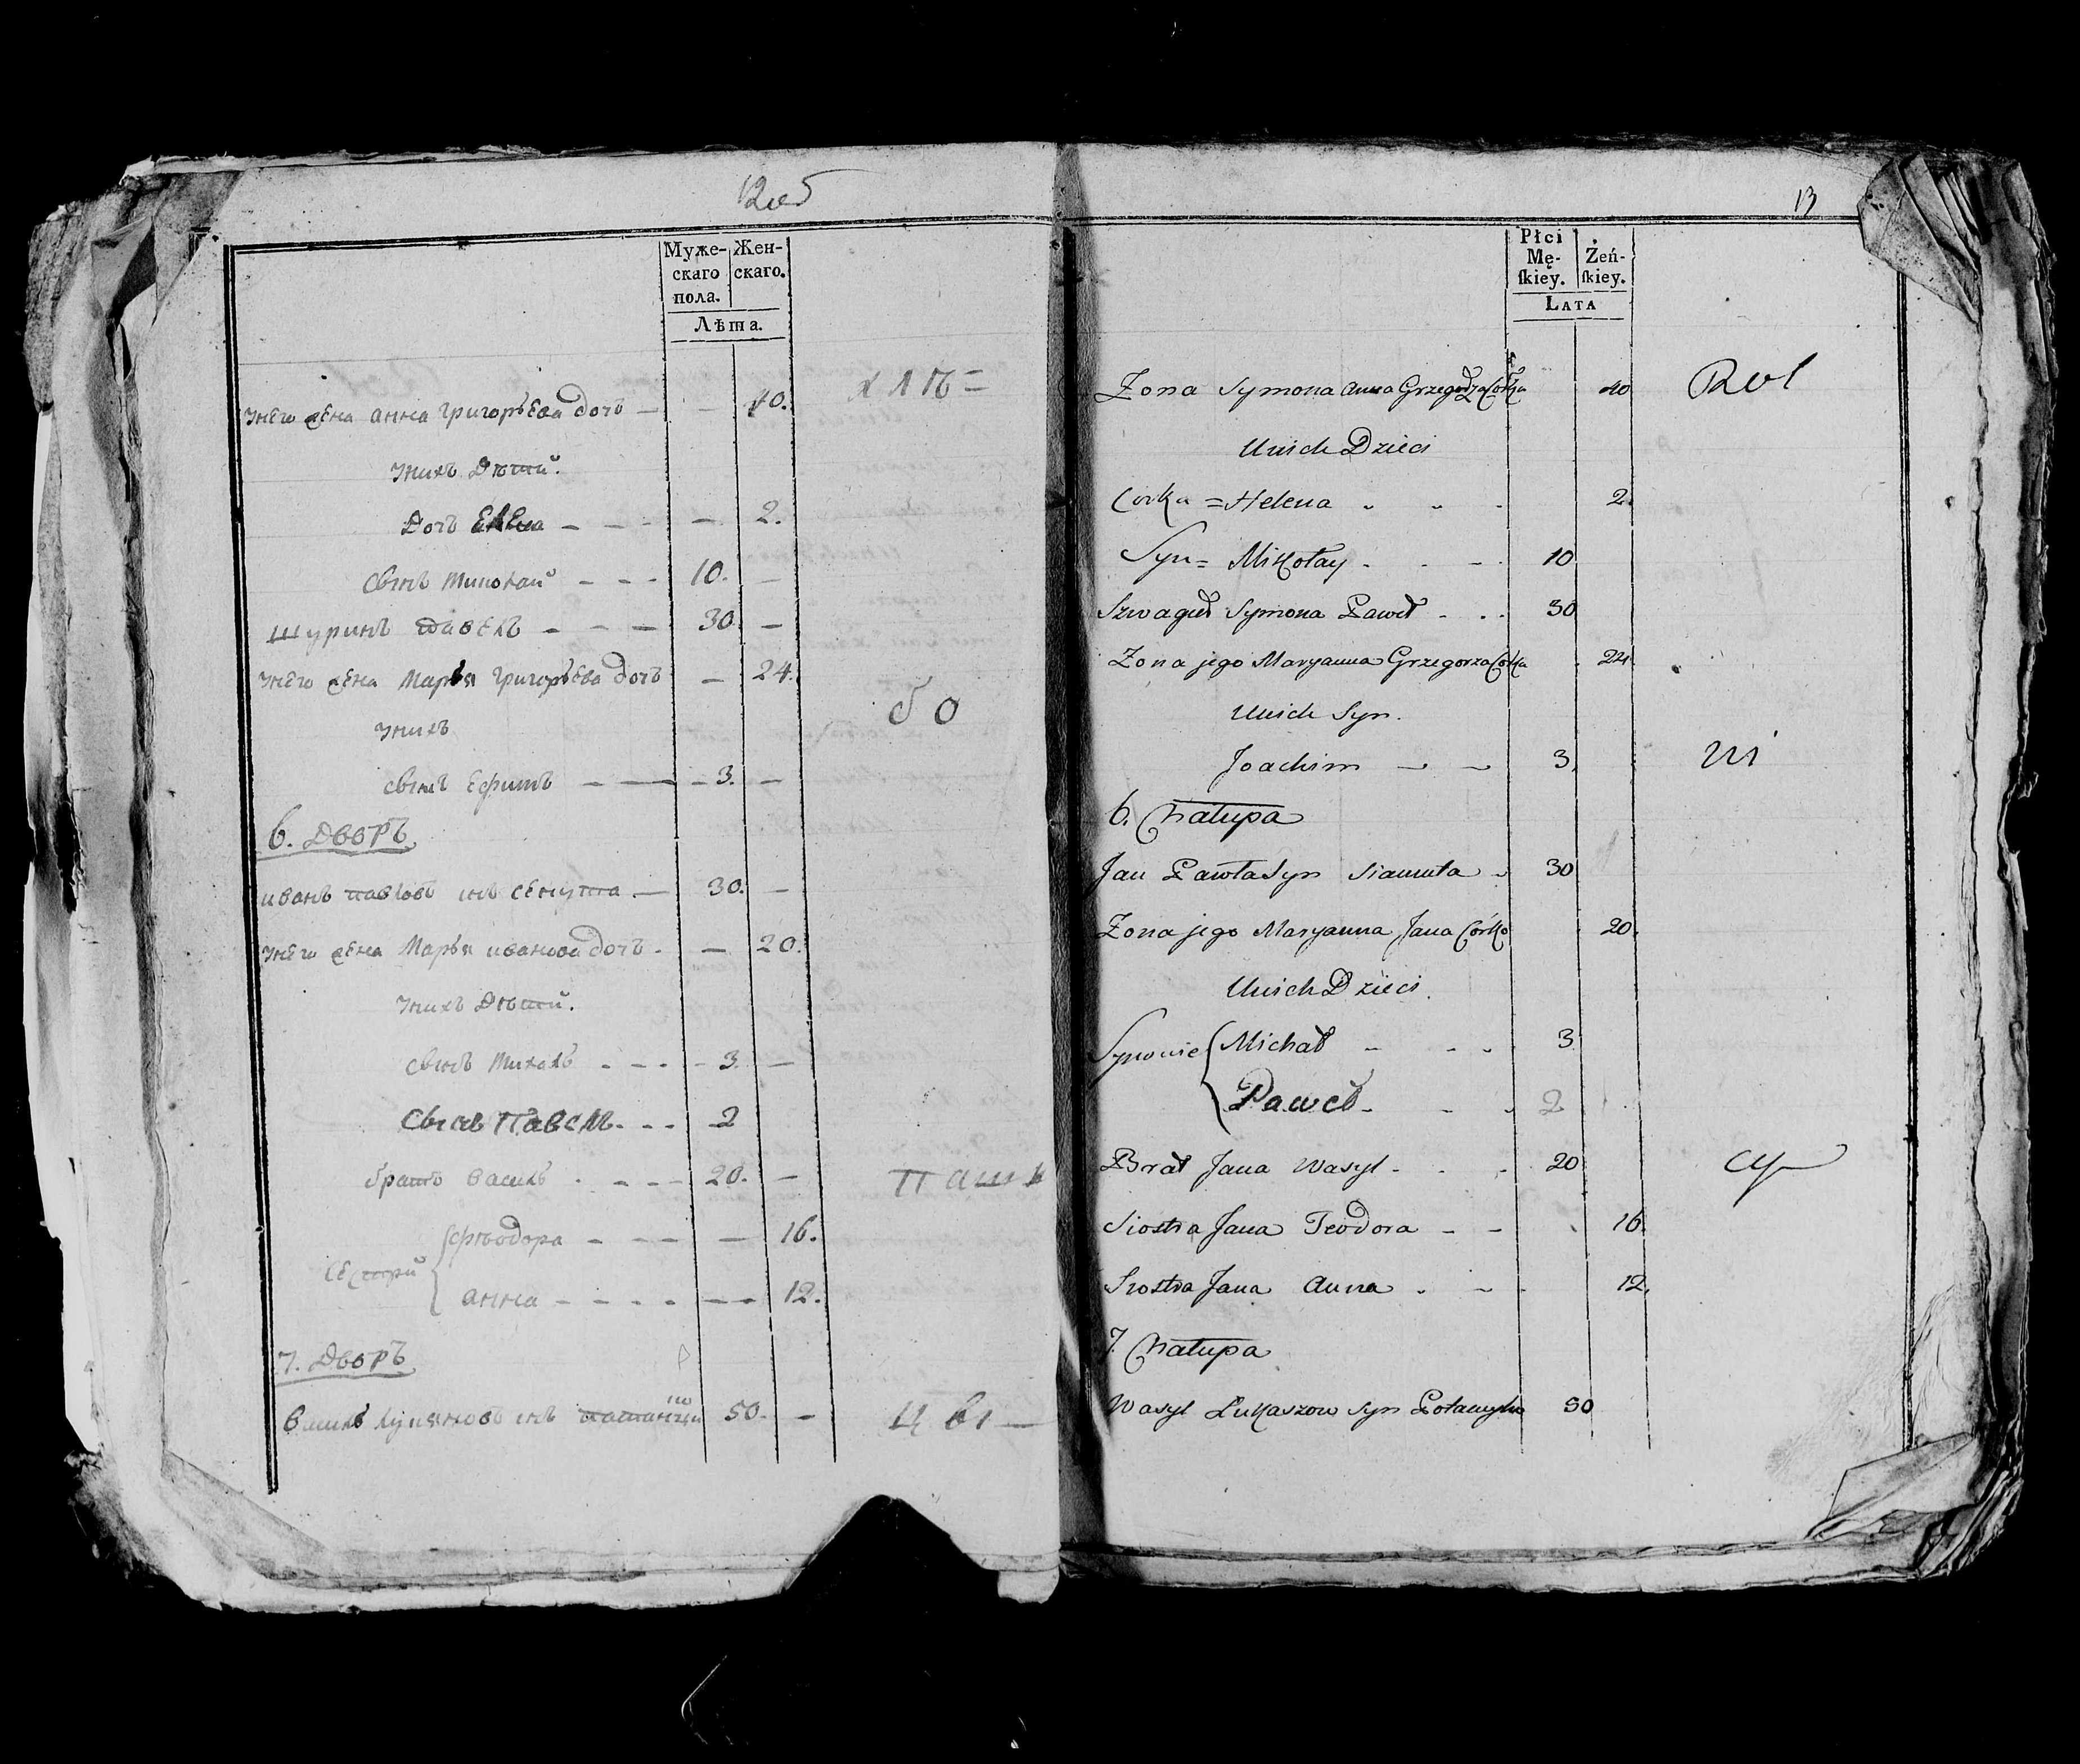 12об
Муже-
скаго
пола.
Жен-
скаго.
Лѣта.
унего жена анна григорьева дочь — — 40.
унихъ дѣтей.
дочь Елена — — — — 2.
сынъ Миколай — — — 10. —
шуринъ павелъ — — — 30. —
унего жена Марья григорьева дочь — 24.
унихъ
сынъ Ефимъ — — — 3. —
6. Дворъ
иванъ павловъ снъ сенюта — 30. —
унего жена Марья иванова дочь - — 20.
унихъ дѣтей.
сынъ Михалъ - - - - 3. —
Сынъ Павелъ - - - 2
братъ василь - - - - 20. —
сестры { феодора - - - — 16.
анна - - - - — 12.
7. Дворъ
василь лукяновъ снъ 50. -
бо
13
Płci
Mę-
ſkiey.
Żeń-
ſkiey.
Lata
Zona Symona Anna Grzegorza Corka 40
Unich Dzieci
Corka = Helena „ „ - 2.
Syn = Mikołay - - - 10
Szwagier Symona Paweł - - - 30
Zona jego Maryanna Grzegorza Corka 24.
Unich Syn.
Joachim — — 3.
6. Chałupa
Jan Pawła Syn Sianuta - 30
Zona jego Maryanna Jana Córka 20.
Unich Dzieci.
Synowie { Michał - - - 3
Paweł - - - 2
Brat Jana Wasyl - - - 20
Siostra Jana Teodora - - 16.
Siostra Jana Anna - - - 12.
7. Chałupa
Wasyl Łukaszow Syn 50